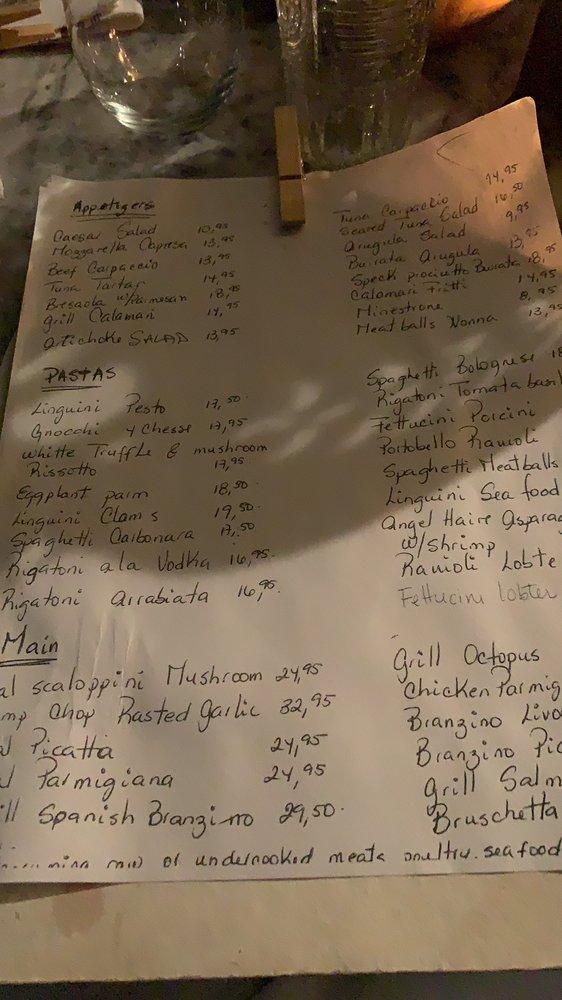 Appetizers
Caesar Salad 10,95
Mozzarella Capresa 13,95
Beef Carpaccio 13,95
Tuna Tartar 14,95
Bresaola w/Parmesan 18,95
Grill Calamari 14,95
Artichoke SALAD 13,95
Tuna Carpaccio 14,95
Seared Tuna Salad 16,50
Arugula Salad 9,95
Burrata Arugula 13,95
Speck prociutto Burrata 18,95
Calamari Fritti 14,95
Minestrone 8,95
Meatballs Nonna 13,9
PASTAS
Linguini Pesto 17,50
Gnocchi 4 Chesse 17,95
Whitte Truffle & mushroom
Rissotto 17,95
Eggplant parm 18,50
Linguini Clams 19,50
Spaghetti Carbonara 17,50
Rigatoni ala Vodka 16,95
Rigatoni arrabiata 16,95
Spaghetti Bolognese 18
Rigatoni Tomata basil
Fettucini Porcini
Portobello Ravioli
Spaghetti Meatballs
Linguini Sea food
Angel Haire Asparag
w/Shrimp
Ravioli Lobte
Fettucini lobster
Main
al scaloppini Mushroom 24,95
mp Chop Rasted garlic 32,95
al Picatta 24,95
al Parmigiana 24,95
ill Spanish Branzino 29,50
Grill Octopus
Chicken Parmig
Branzino Livo
Branzino Pic
Grill Salm
Bruschetta
of undercooked meats poultry. seafood